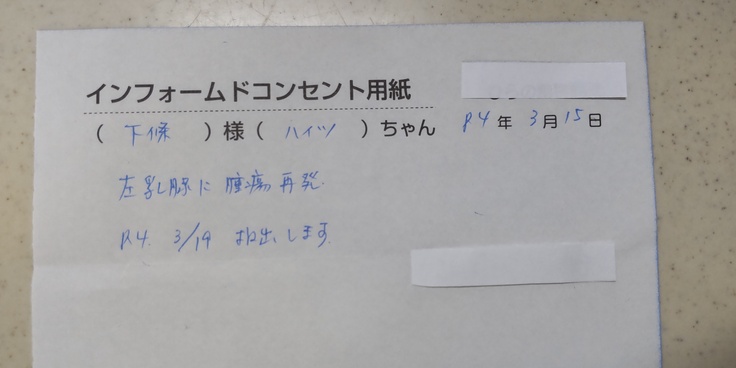 インフォームドコンセント用紙
( 下條 ) 様 ( ハイツ ) ちゃん R4 年 3 月 15 日
左乳腺に 腫瘍 再発.
R4. 3/19 摘出します.